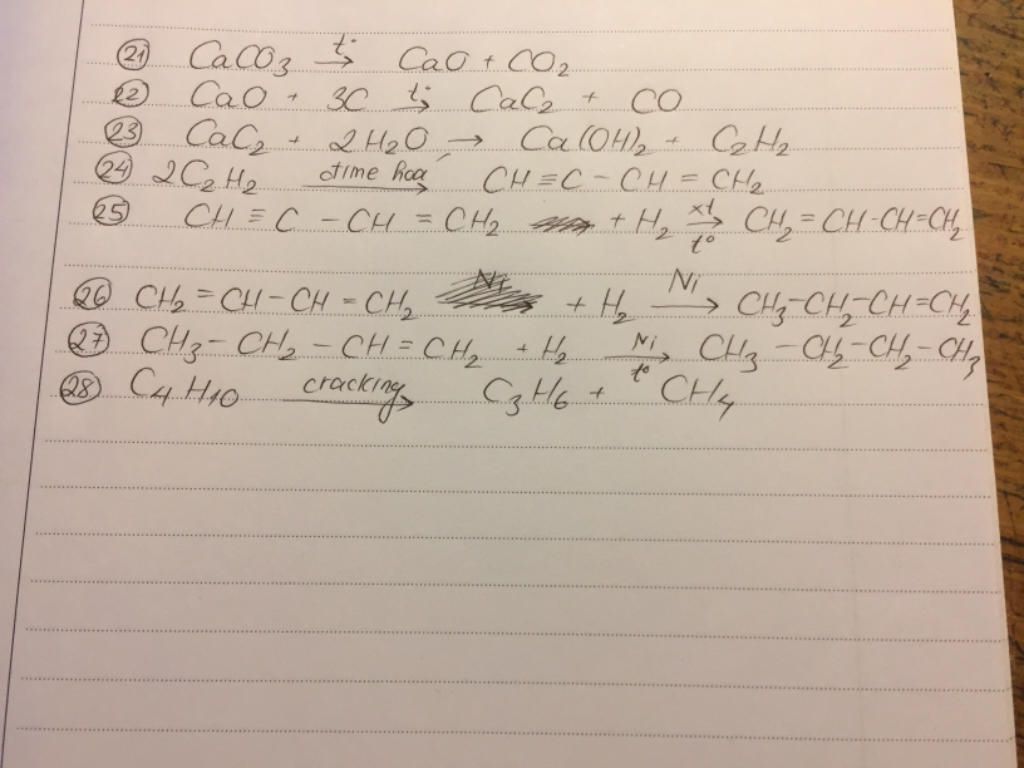 21 CaCO₃ t° → CaO + CO₂
22 CaO + 3C t° → CaC₂ + CO
23 CaC₂ + 2H₂O → Ca(OH)₂ + C₂H₂
24 2C₂H₂ dime hoá → CH ≡ C – CH = CH₂
25 CH ≡ C – CH = CH₂ + H₂ xt → t° CH₂ = CH - CH = CH₂
26 CH₂ = CH – CH = CH₂ + H₂ Ni → CH₃ – CH₂ – CH = CH₂
27 CH₃ – CH₂ – CH = CH₂ + H₂ Ni → t° CH₃ – CH₂ – CH₂ – CH₃
28 C₄H₁₀ cracking → C₃H₆ + CH₄